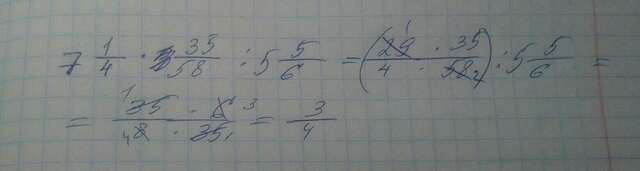 7 1/4 · 35/58 : 5 5/6 = (29 · 35 / 4 · 58) : 5 5/6 =
= 35 · 6 / 8 · 35 = 3/4